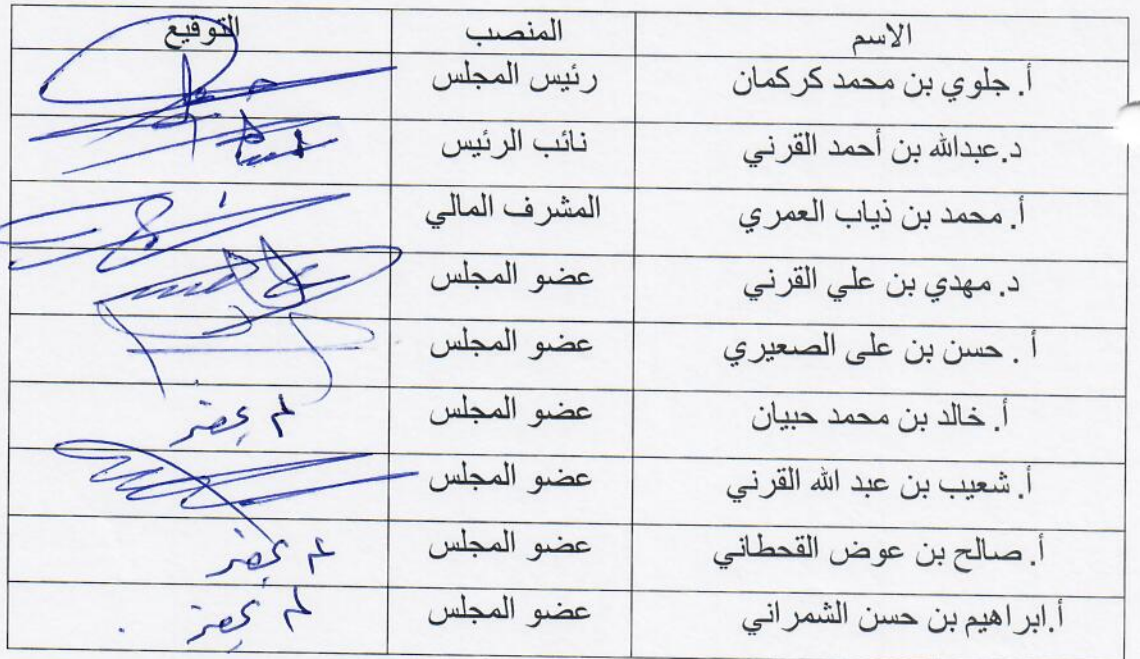 الاسم المنصب التوقيع
أ. جلوي بن محمد كركمان رئيس المجلس
د.عبدالله بن أحمد القرني نائب الرئيس
أ. محمد بن ذياب العمري المشرف المالي
د. مهدي بن علي القرني عضو المجلس
أ . حسن بن على الصعيري عضو المجلس
أ. خالد بن محمد حبيان عضو المجلس لم يحضر
أ. شعيب بن عبد الله القرني عضو المجلس
أ. صالح بن عوض القحطاني عضو المجلس لم يحضر
أ.ابراهيم بن حسن الشمراني عضو المجلس لم يحضر